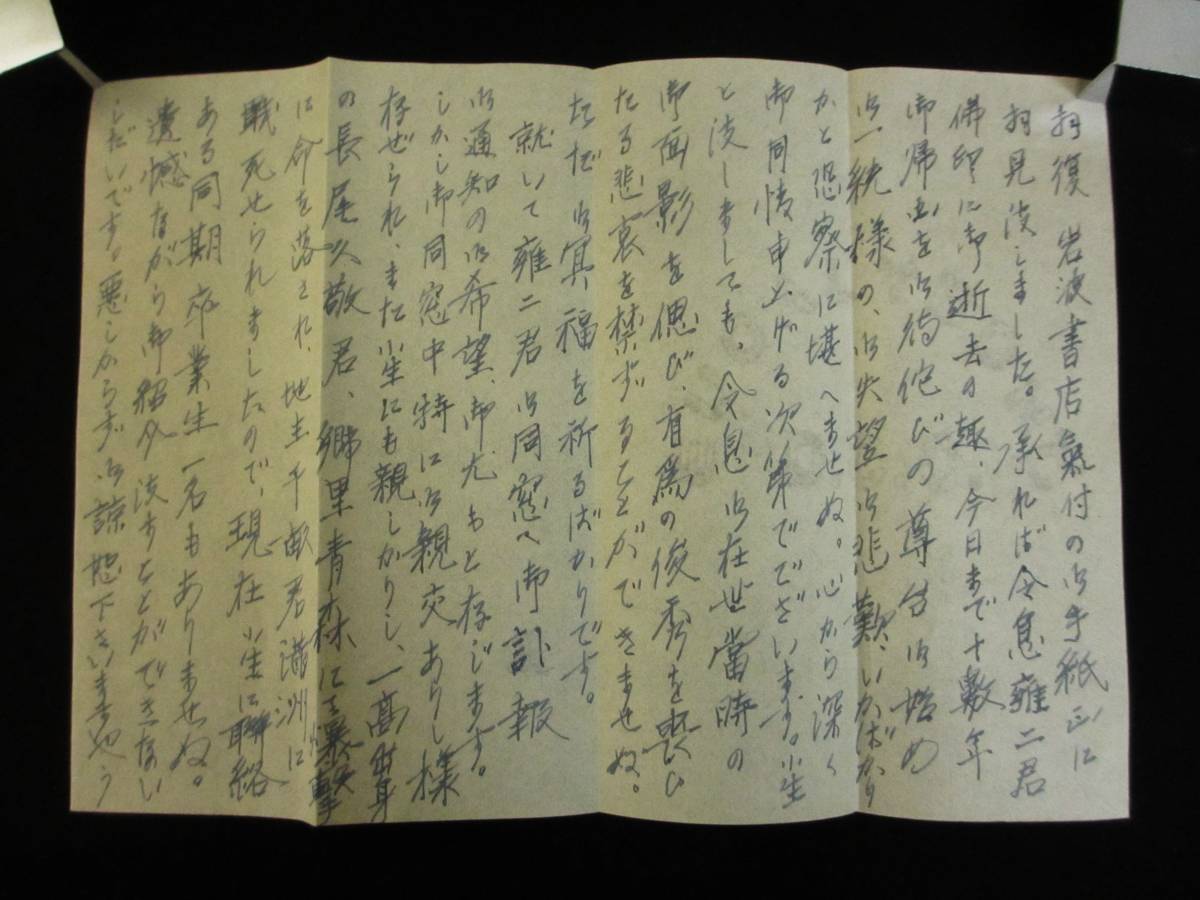 拝復 岩波書店氣付の御手紙正に
拝見致しました。承れば令息雍二君
佛印に御逝去の趣、今日まで十數年
御帰宅を御待侘びの尊台御始め
御一統様の、御失望御悲歎、いかばかり
かと恐察に堪へませぬ。心から深く
御同情申上げる次第でございます。小生
と致しましても、令息御在世當時の
御面影を偲び、有爲の俊秀を喪ひ
たる悲哀を禁ずることができませぬ。
たゞ御冥福を祈るばかりです。
就いて雍二君御同窓へ御訃報
御通知の御希望、御尤もと存じます。
しかし御同窓中特に御親交ありし様
存ぜられ、また小生にも親しかりし、一高出身
の長尾久敬君、郷里青森にて爆撃
に命を落され、地主千畝君満洲に
戦死せられましたので、現在小生に聯絡
ある同期卒業生一名もありませぬ。
遺憾ながら御紹介致すことができない
しだいです。悪しからず御諒恕下さいますやう